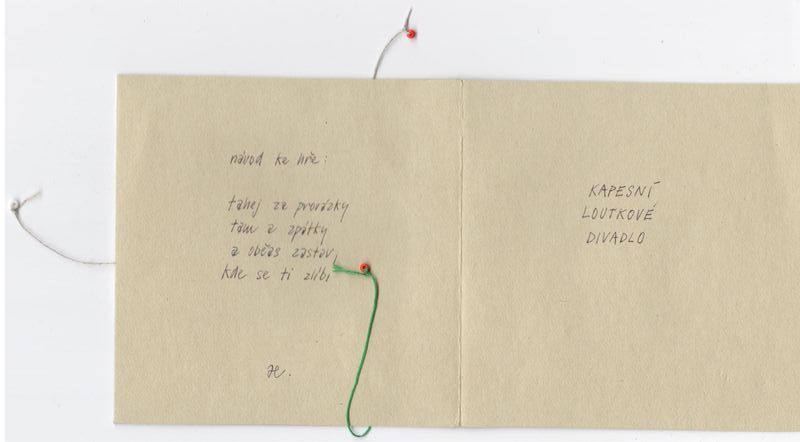 návod ke hře:
tahej za provázky
tam a zpátky
a občas zastav,
kde se ti zlíbí
KAPESNÍ
LOUTKOVÉ
DIVADLO